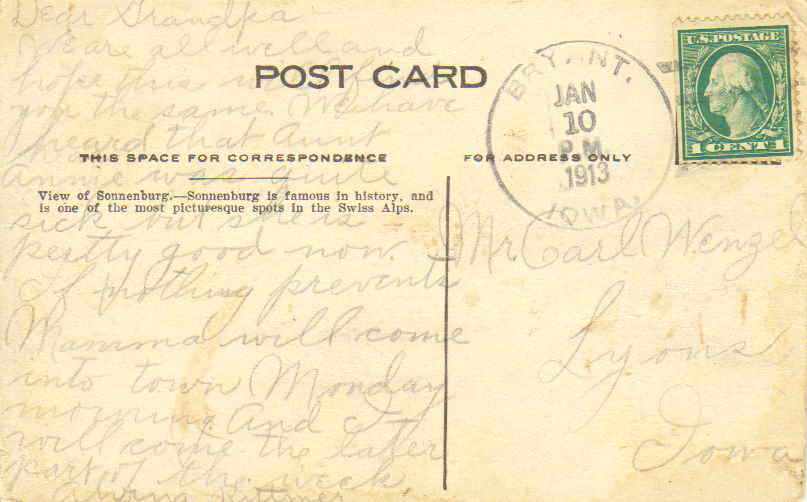 Dear Grandpa -
We are all well and
hope this will find
you the same. We have
heard that Aunt
Annie was quite
sick but she is
pretty good now.
If nothing prevents
Mamma will come
into town Monday
morning. And I
will come the later
part of the week.
POST CARD
THIS SPACE FOR CORRESPONDENCE
FOR ADDRESS ONLY
View of Sonnenburg.—Sonnenburg is famous in history, and
is one of the most picturesque spots in the Swiss Alps.
BRYANT.
JAN
10
P.M.
1913
IOWA.
U.S. POSTAGE
1 CENT 1
Mr. Carl Wenzel
Lyons
Iowa